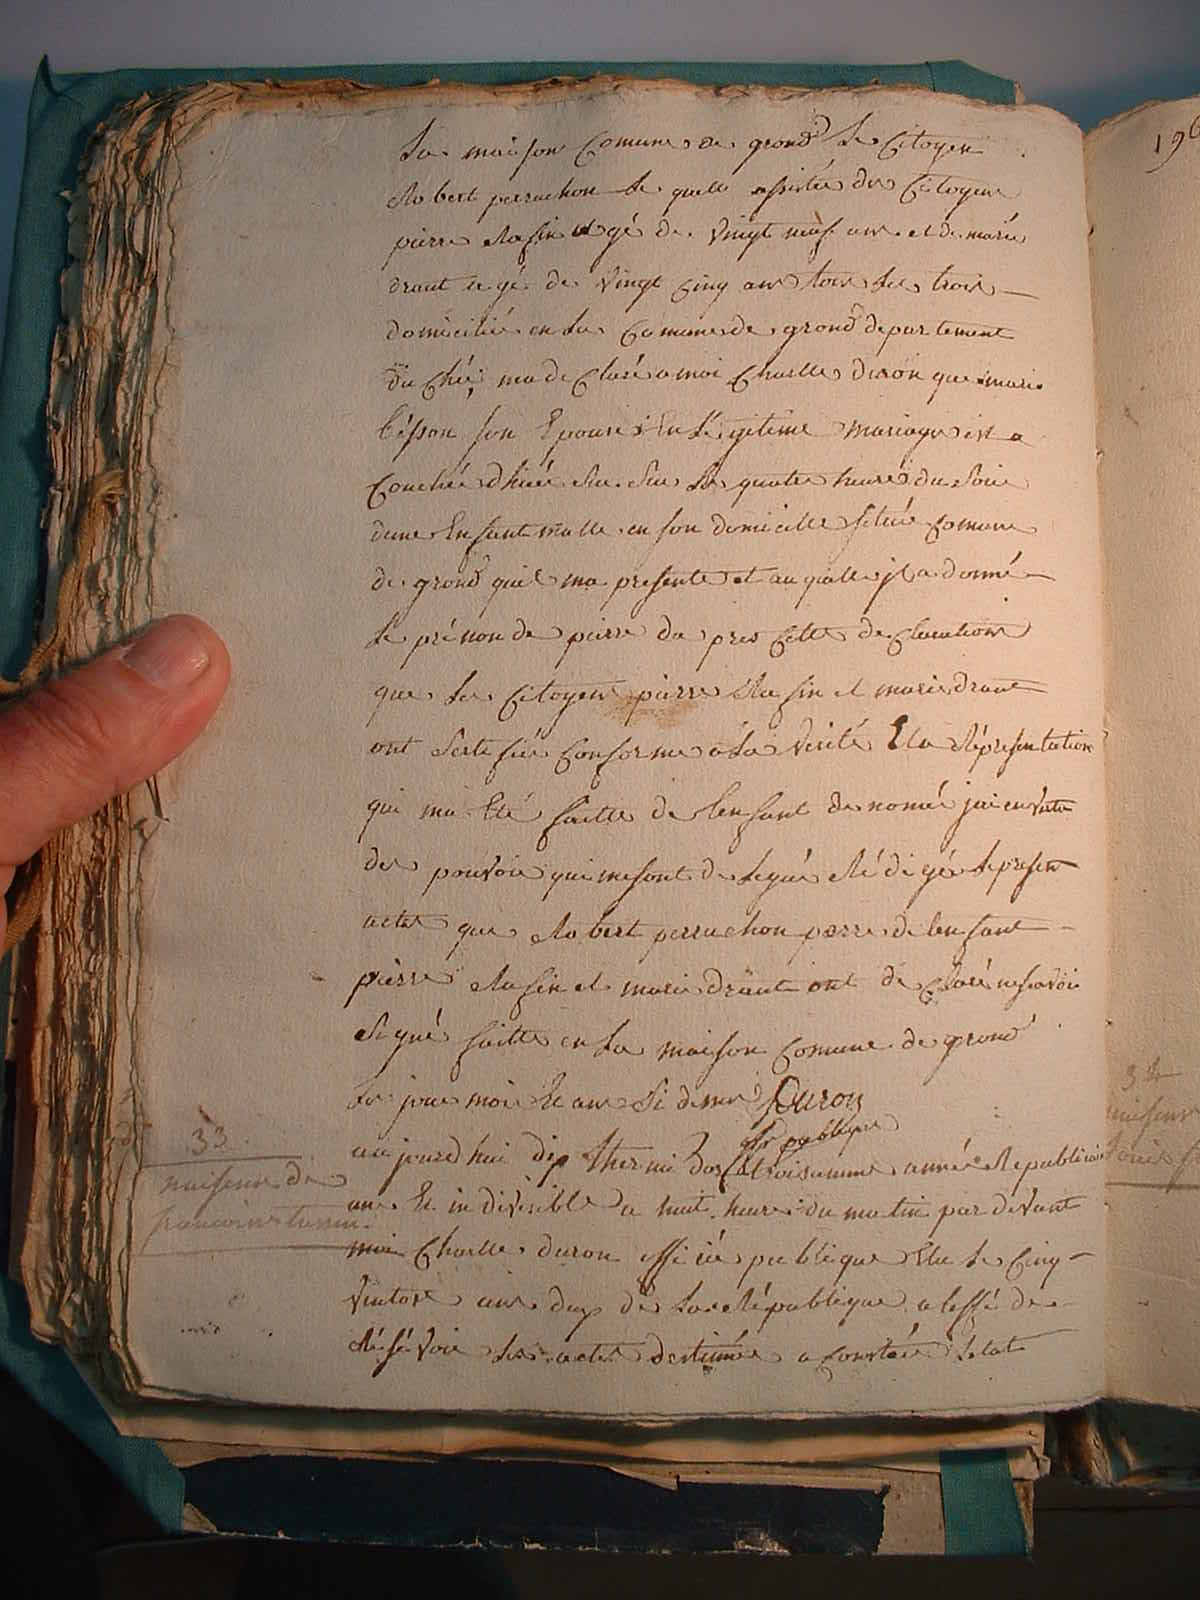 La maison Comune de grond Le Citoyen
Robert perruchon Le quelle assistée des Citoyens
pierre Rasin agé de vingt neuf ans et de marie
draut agé de vingt Cinq ans tous Les trois
domicilié en La Comune de grond departement
du Chér ma de Claré a moi Charlle duron que marie
bésson son Epouse En Légitime mariage est a
Couchée dhiér sur Les quatre heures du Soir
dune Enfant malle en son domicille scituée Comune
de grond quil ma presente et au qualle jl a donné
Le prénon de pierre da pres Cette de Claration
que Les Citoyens pierre Rasin et marie draut
ont Sertifiée Conforme a La verité E la Répresentation
qui ma Eté faitte de lenfant de nomé jai en vertu
des pouvoir qui mesont de Legué Ré di gé Le presen
acte que Robert perruchon perre de lenfant
pierre Rasin et marie draut ont de Claré ne savoir
Signé faitte en La maison Comune de grond
Le jour mois Et ans Si desus Duron
offr publique
au jourd hui dix thermi dor troisieme année Republicaine
une Et in divisible a huit heure du matin par devant
moi Charlle duron offi cié publique Elu Le Cinq
Vintose ans deux de La République a leffé de
Résévoir Les actes destinée a Constaté Létat
33
naisence de
francoin
196
34
naisence